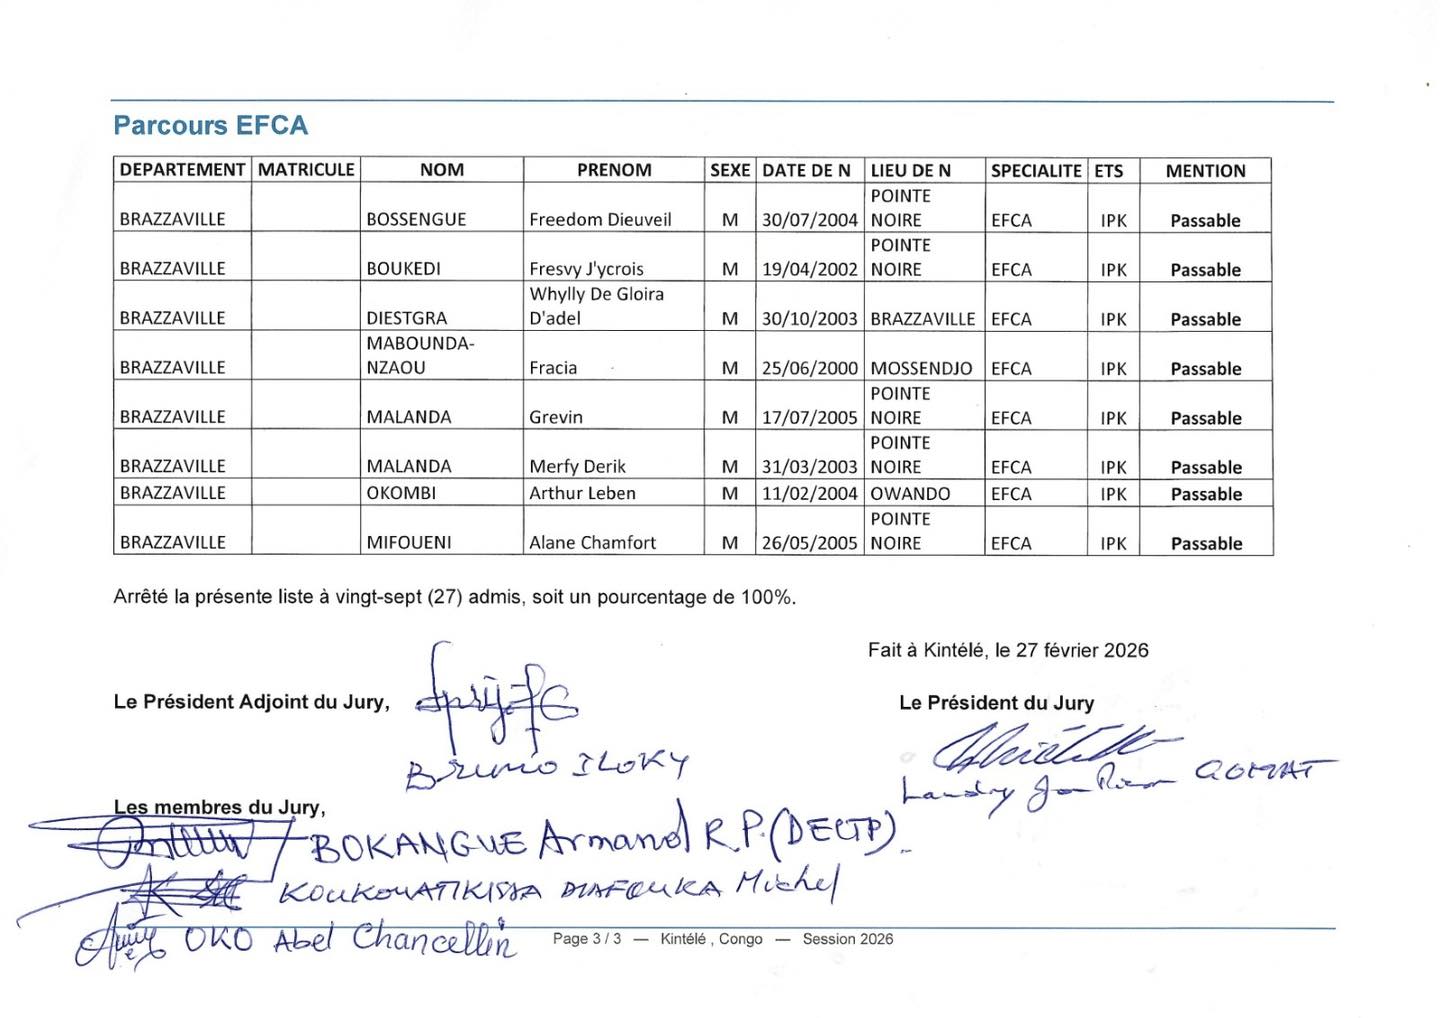 Parcours EFCA
DEPARTEMENT MATRICULE NOM PRENOM SEXE DATE DE N LIEU DE N SPECIALITE ETS MENTION
BRAZZAVILLE BOSSENGUE Freedom Dieuveil M 30/07/2004 POINTE NOIRE EFCA IPK Passable
BRAZZAVILLE BOUKEDI Fresvy J'ycrois M 19/04/2002 POINTE NOIRE EFCA IPK Passable
BRAZZAVILLE DIESTGRA Whylly De Gloira D'adel M 30/10/2003 BRAZZAVILLE EFCA IPK Passable
BRAZZAVILLE MABOUNDA-NZAOU Fracia M 25/06/2000 MOSSENDJO EFCA IPK Passable
BRAZZAVILLE MALANDA Grevin M 17/07/2005 POINTE NOIRE EFCA IPK Passable
BRAZZAVILLE MALANDA Merfy Derik M 31/03/2003 POINTE NOIRE EFCA IPK Passable
BRAZZAVILLE OKOMBI Arthur Leben M 11/02/2004 OWANDO EFCA IPK Passable
BRAZZAVILLE MIFOUENI Alane Chamfort M 26/05/2005 POINTE NOIRE EFCA IPK Passable
Arrêté la présente liste à vingt-sept (27) admis, soit un pourcentage de 100%.
Fait à Kintélé, le 27 février 2026
Le Président Adjoint du Jury,
Le Président du Jury
Bruno ILOKY
Landry
Les membres du Jury,
BOKANGUE Armand R.P. (DECTP).
KOUKOUATIKISSA DIAFOUKA Michel
OKO Abel Chancellin
Page 3 / 3 — Kintélé , Congo — Session 2026